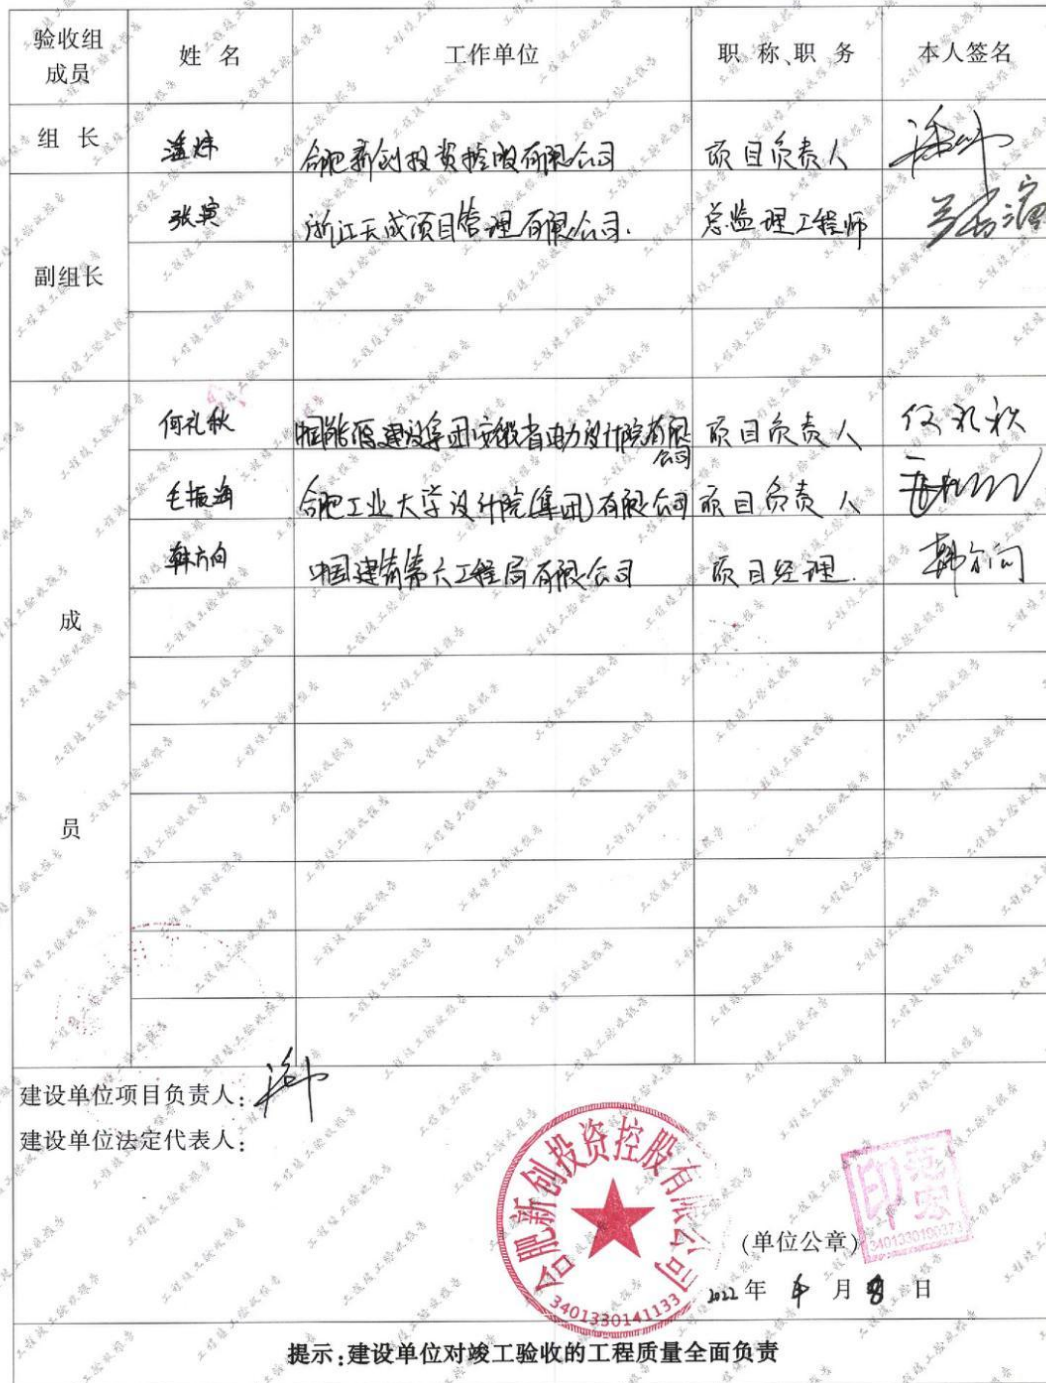 验收组成员 姓 名 工作单位 职 称、职 务 本人签名
组 长 合肥新创投资控股有限公司 项目负责人
张 浙江天成项目管理有限公司. 总监理工程师
副组长
何礼秋 中国能源建设集团安徽省电力设计院有限公司 项目负责人 何礼秋
毛振海 合肥工业大学设计院(集团)有限公司 项目负责人
韩方向 中国建筑第六工程局有限公司 项目经理. 韩方向
成
员
建设单位项目负责人:
建设单位法定代表人:
合肥新创投资控股有限公司
3401330141133
印
(单位公章)
2022年 月 日
提示:建设单位对竣工验收的工程质量全面负责
工程竣工验收报告